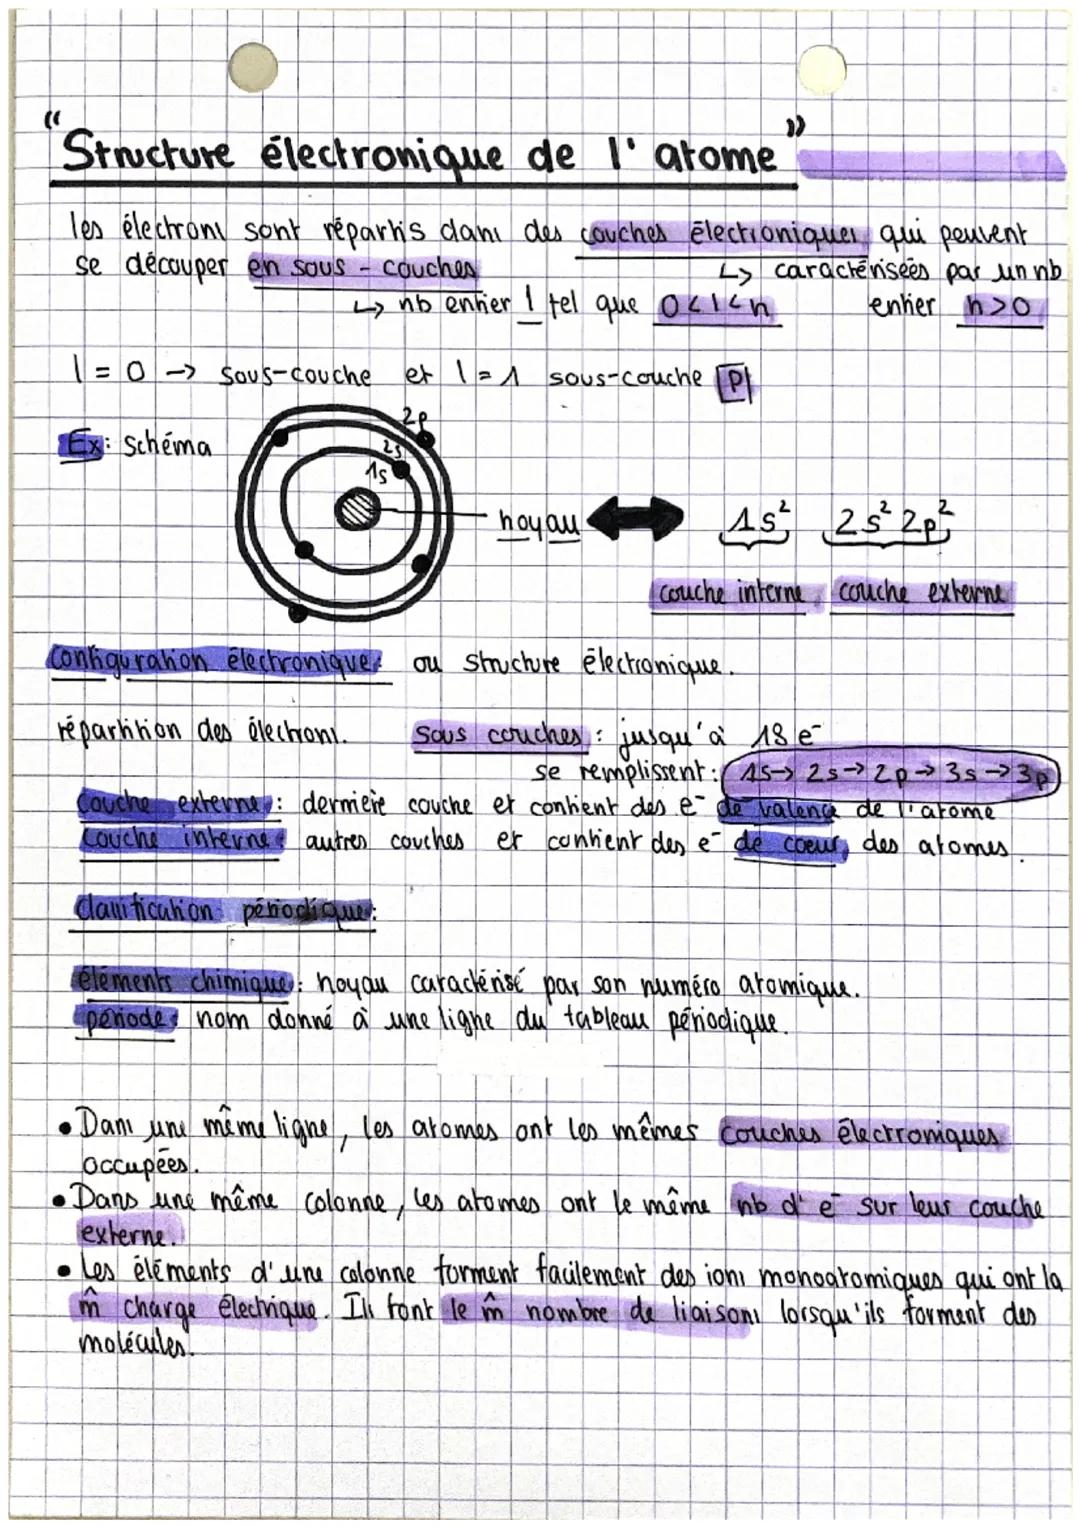 "Structure électronique de l'atome"
les électrons sont répartis dans des couches électroniques qui peuvent
se découper en sous-couches
↳ caractérisées par un nb
↳ nb entier l tel que 0<l<n
entier n>0
l = 0 → sous-couche et l = 1 sous-couche p
Ex: Schéma
2p
2s
1s
noyau
1s² 2s² 2p²
couche interne couche externe
Configuration électronique: ou structure électronique.
répartition des électrons. Sous couches : jusqu'à 18 e⁻
se remplissent : 1s→ 2s→ 2p→ 3s→ 3p
Couche externe : dernière couche et contient des e⁻ de valence de l'atome
Couche interne : autres couches et contient des e⁻ de coeur des atomes.
Classification périodique:
éléments chimique : noyau caractérisé par son numéro atomique.
période : nom donné à une ligne du tableau périodique.
• Dans une même ligne, les atomes ont les mêmes couches électroniques
occupées.
• Dans une même colonne, les atomes ont le même nb d'e⁻ sur leur couche
externe.
• Les éléments d'une colonne forment facilement des ions monoatomiques qui ont la
m̂ charge électrique. Ils font le m̂ nombre de liaisons lorsqu'ils forment des
molécules.